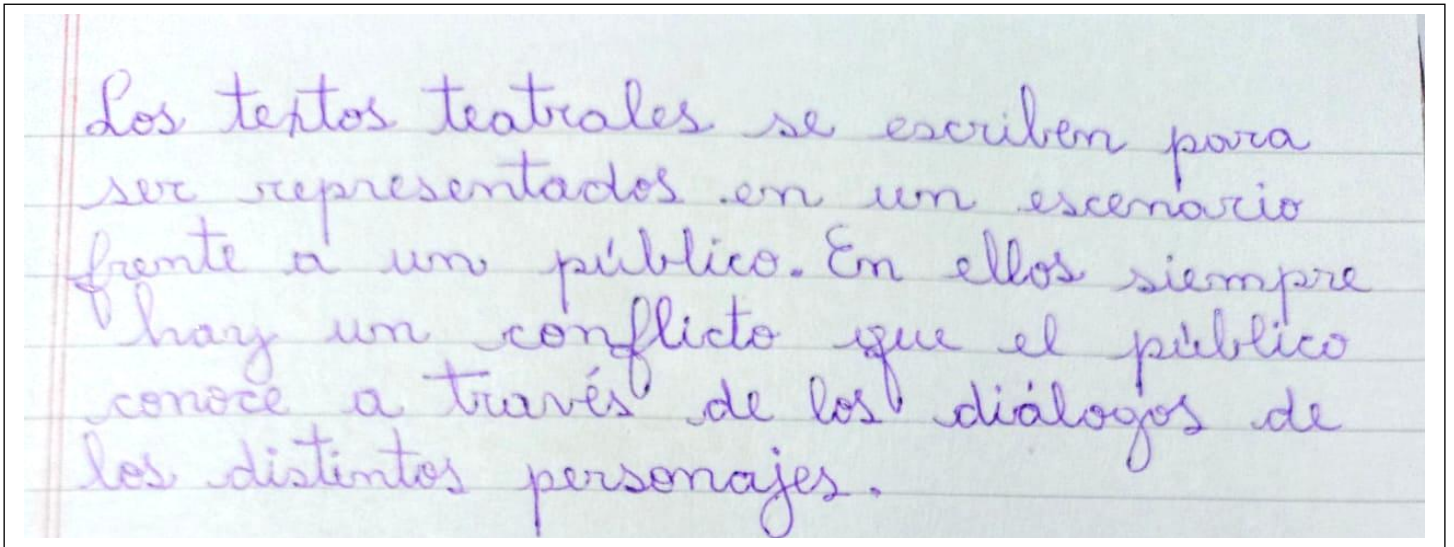 Los textos teatrales se escriben para
ser representados en un escenario
frente a un público. En ellos siempre
hay un conflicto que el público
conoce a través de los diálogos de
los distintos personajes.